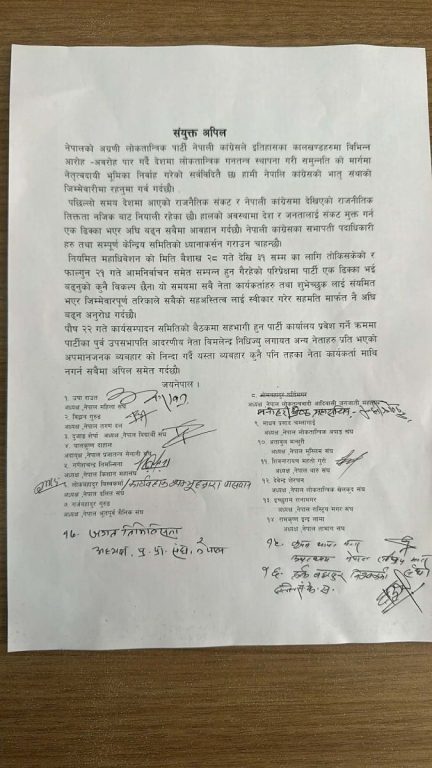 संयुक्त अपिल
नेपालको अग्रणी लोकतान्त्रिक पार्टी नेपाली कांग्रेसले इतिहासका कालखण्डहरुमा विभिन्न
आरोह -अवरोह पार गर्दै देशमा लोकतान्त्रिक गणतन्त्र स्थापना गरी समुन्नति को मार्गमा
नेतृत्वदायी भूमिका निर्वाह गरेको सर्वविदितै छ। हामी नेपालि कांग्रेसको भातृ संस्थाको
जिम्मेवारीमा रहनुमा गर्व गर्दछौं।
पछिल्लो समय देशमा आएको राजनैतिक संकट र नेपाली कांग्रेसमा देखिएको राजनीतिक
तिक्तता नजिक बाट नियाली रहेका छौ। हालको अवस्थामा देश र जनतालाई संकट मुक्त गर्न
एक ढिक्का भएर अघि बढ्न सबैमा आवहान गर्दछौं। नेपाली कांग्रेसका सभापती पदाधिकारी
हरु तथा सम्पूर्ण केन्द्रिय समितिको ध्यानाकर्सन गराउन चाहन्छौं।
नियमित महाधिवेशन को मिति बैशाख २८ गते देखि ३१ सम्म का लागि तोकिसकेको र
फाल्गुन २१ गते आमनिर्वाचन समेत सम्पन्न हुन गैरहेको परिप्रेक्षमा पार्टी एक ढिक्का भई
बढ्नुको कुनै विकल्प छैन। यो समयमा सबै नेता कार्यकर्ताहरु तथा शुभेच्छुक लाई संयमित
भएर जिम्मेवारपूर्ण तरिकाले सबैको सहअस्तित्व लाई स्वीकार गरेर सहमति मार्फत नै अघि
बढ्न अनुरोध गर्दछौं।
पौष २२ गते कार्यसम्पादन समितिको बैठकमा सहभागी हुन पार्टी कार्यालय प्रवेश गर्ने क्रममा
पार्टीका पुर्व उपसभापति आदरणीय नेता बिमलेन्द्र निधिज्यु लगायत अन्य नेताहरु प्रति भएको
अपमानजनक व्यवहार को निन्दा गर्दै यस्ता व्यवहार कुनै पनि तहका नेता कार्यकर्ता माथि
नगर्न सबैमा अपिल समेत गर्दछौं।
जयनेपाल ।
१. उषा राउत
अध्यक्ष ,नेपाल महिला संघ
२. विद्वान गुरुङ
अध्यक्ष ,नेपाल तरुण दल
३. दुजाङ शेर्पा अध्यक्ष ,नेपाल विद्यार्थी संघ
४. बालकृष्ण दाहाल
अध्यक्ष ,नेपाल प्रजातन्त्र सेनानी संघ
५.
अध्यक्ष ,नेपाल किसान महासंघ
लोकबहादुर विश्वकर्मा
अध्यक्ष ,नेपाल दलित संघ
अध्यक्ष ,नेपाल भुतपूर्व सैनिक संघ
८.
अध्यक्ष ,नेपाल लोकतन्त्रवादी आदिवासी जनजाती महासंघ
९ माधव प्रसाद
अध्यक्ष ,नेपाल लोकतान्त्रिक अपाङ्ग संघ
१० अताबुल मन्सुरी
अध्यक्ष ,नेपाल मुस्लिम संघ
११ शिवनारायण महतो थुरी
अध्यक्ष ,नेपाल थारु संघ
१२ देवेन्द्र शेरचन
अध्यक्ष ,नेपाल लोकतान्त्रिक खेलकुद संघ
१३ इच्छुराम रानामगर
अध्यक्ष ,नेपाल राष्ट्रिय मगर संघ
१४ रामकृष्ण इन्द्र लामा
अध्यक्ष ,नेपाल तामाङ संघ